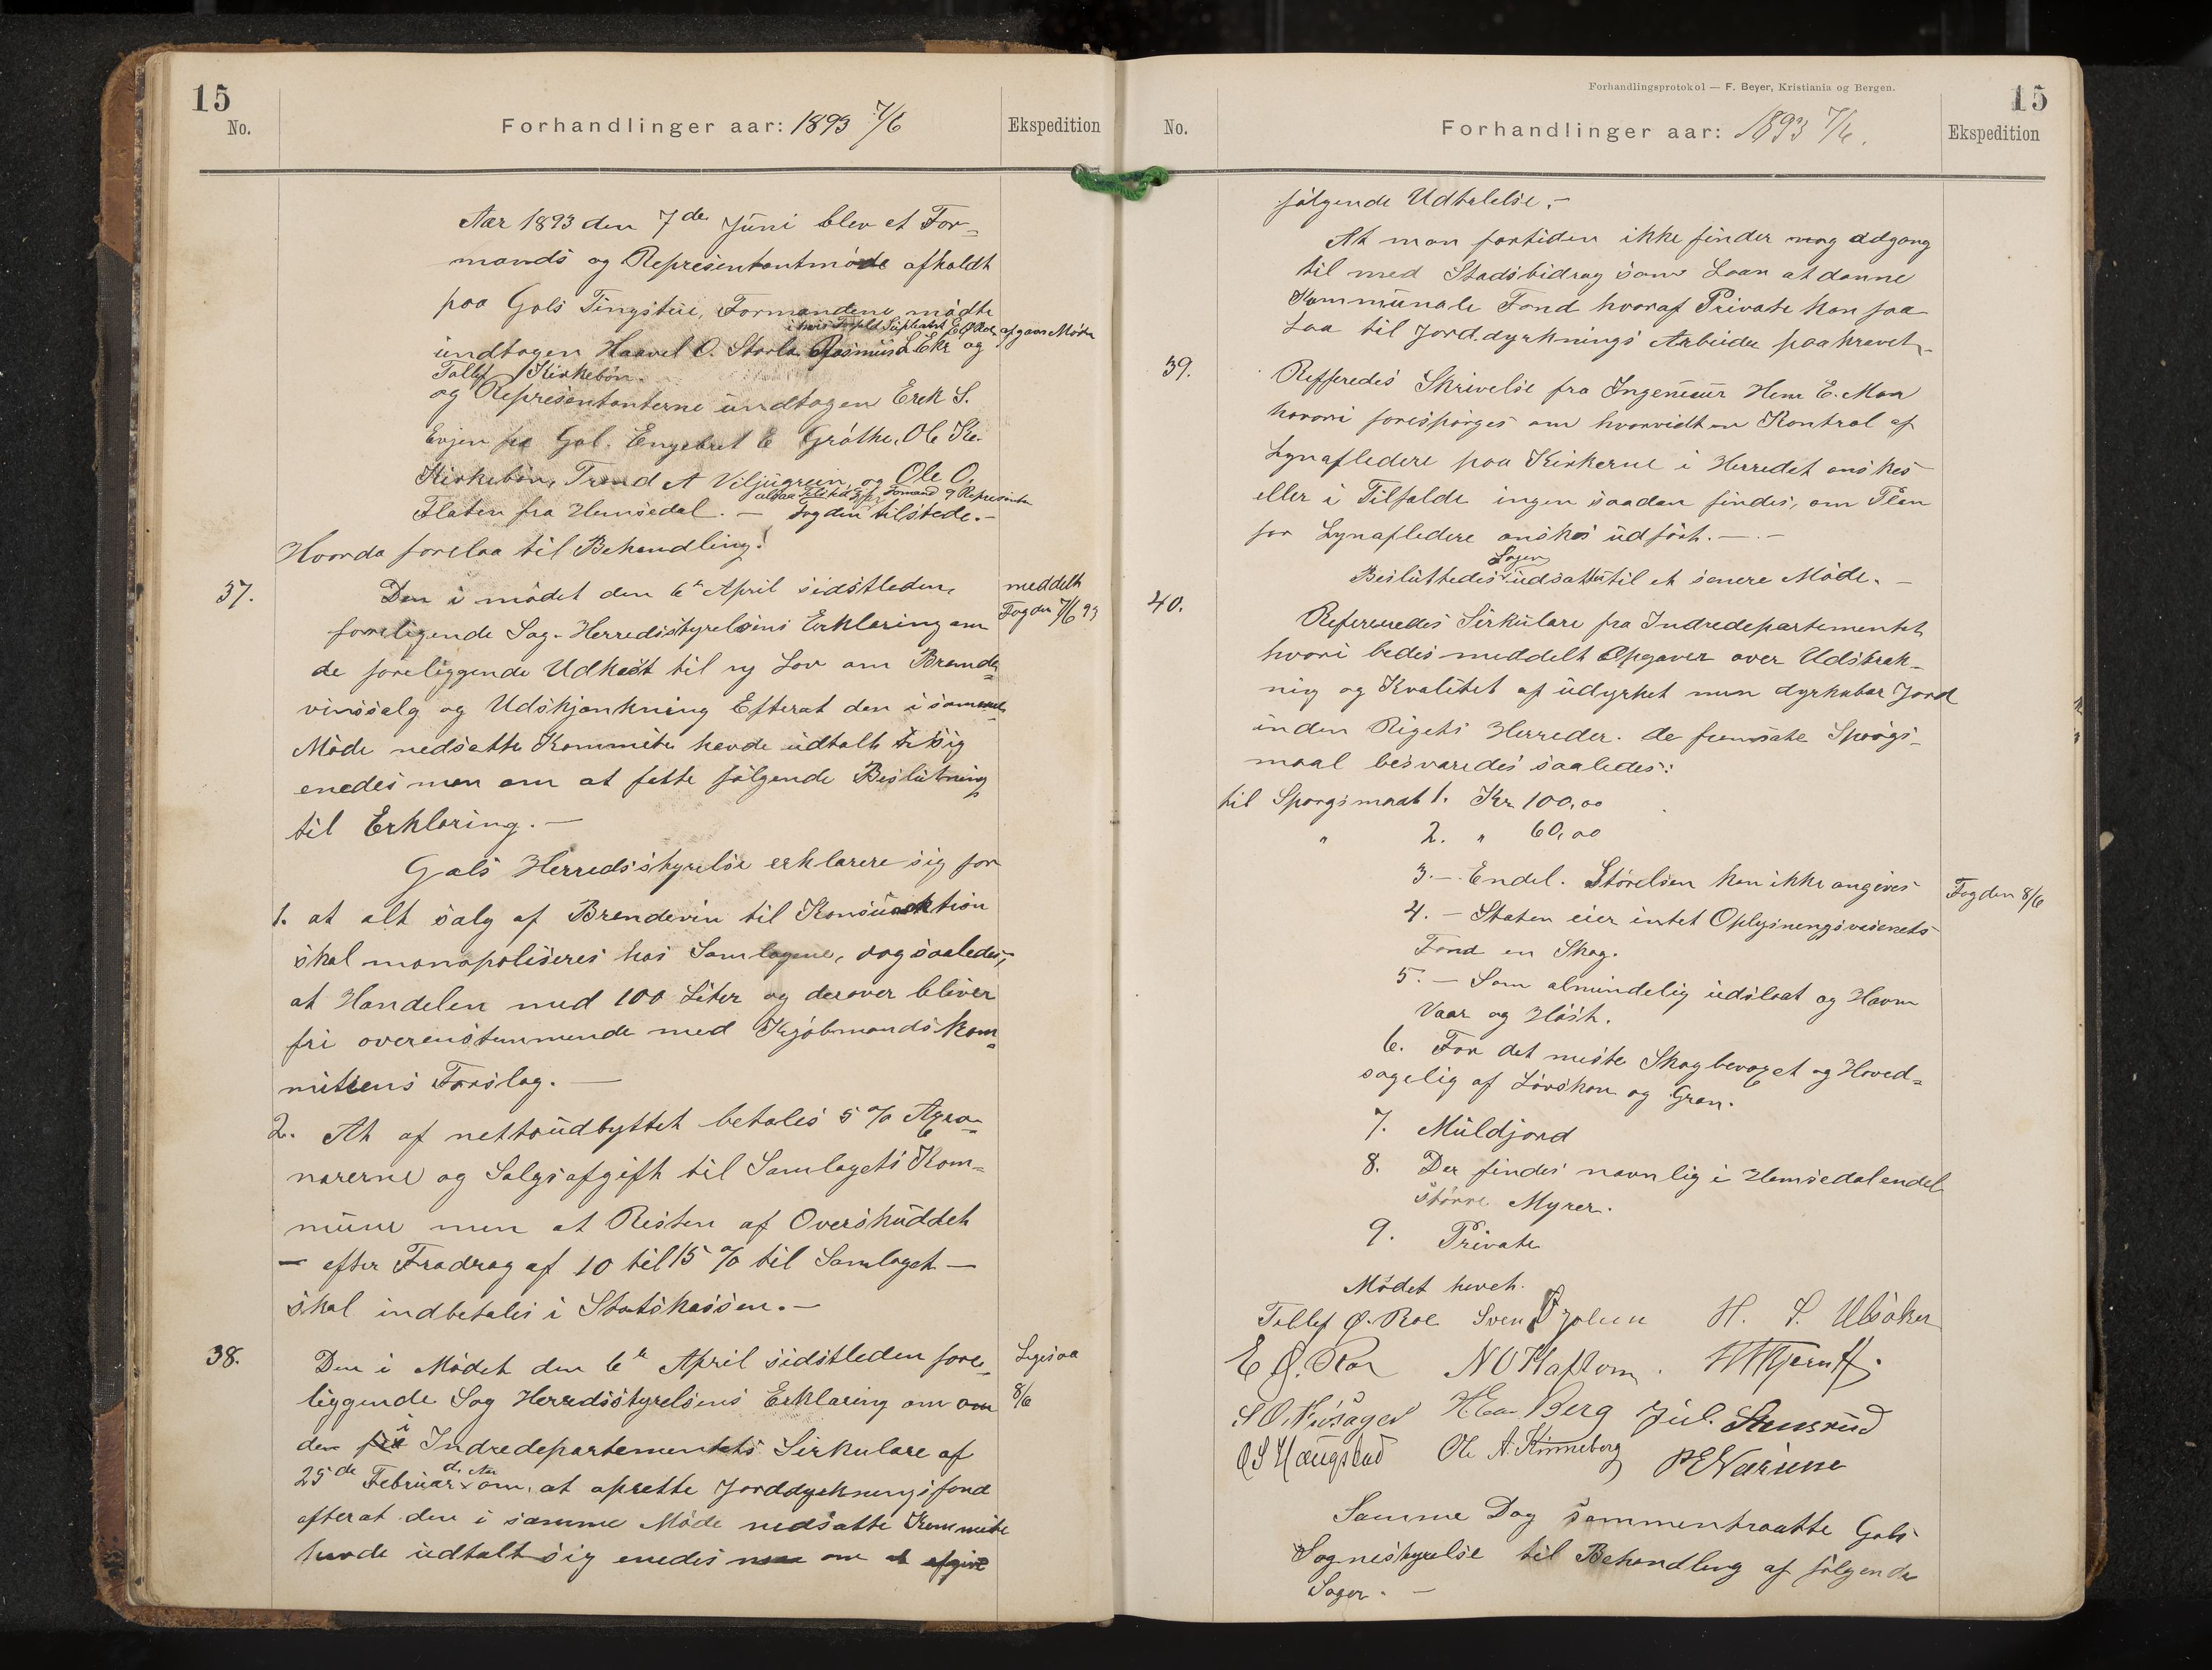 15
No.
Forhandlinger aar: 1893 7/6
Ekspedition
Aar 1893 den 7de Juni blev et For-
mands og Representantmøde afholdt
paa Gols Tingstue, Formændene mødte
undtagen Haavel O. Storla Rasmus L Ekr og
Tollef Kirkebøn.
og Representanterne undtagen Erek S.
Evjen fra Gol. Engebret E Grøthe, Ole Ke.
Kirkebøn, Trond A Viljugrein, og Ole O.
Flaten fra Hemsedal. — Fogden tilstede.-
Hvorda forelaa til Behandling!
37.
Den i mødet den 6te April sidstleden,
foreligende Sag - Herredsstyrelsens Erklæring om
de foreliggende Udkast til ny Lov om Brænde-
vinssalg og Udskjænkning Efterat den i samme
Møde nedsatte Kommite havde udtalt sig
enedes man om at fatte følgende Beslutning
til Erklæring. —
meddelt
Fogden 7/6 93
Gols Herredsstyrelse erklærer sig for
1. at alt salg af Brændevin til Konsumtion
skal monopoliseres hos Samlagene, dog saaledes,
at Handelen med 100 Liter og derover bliver
fri overensstemmende med Kjøbmandskom-
miteens Forslag. —
2. At af nettoudbyttet betales 5 % Agio-
nærerne og Salgsafgift til Samlagets Kom-
mune men at Resten af Overskuddet
— efter Fradrag af 10 til 15 % til Samlaget —
skal indbetales i Statskassen. —
38.
Den i Mødet den 6te April sidstleden fore-
liggende Sag Herredsstyrelsens Erklæring om
den i Indredepartementets Sirkulære af
25de Februar d. Aa. om, at oprette Jorddyrkningsfond
efterat den i samme Møde nedsatte Kommite
havde udtalt sig enedes man om at afgive
Ligesaa
8/6
Forhandlingsprotokol — F. Beyer, Kristiania og Bergen.
15
No.
Forhandlinger aar: 1893 7/6.
Ekspedition
følgende Udtalelse. -
At man fortiden ikke finder nog adgang
til med Stadsbidrag som Laan at danne
Kommunale Fond hvoraf Private kan faa
Laa til Jorddyrknings Arbeide paakrævet.
39.
Refferedes Skrivelse fra Ingeniøur Henr E. Moa
hvorri forespørges om hvorvidt en Kontrol af
Lynafledere paa Kirkerne i Herredet ønskes
eller i Tilfælde ingen saadan findes, om Plan
for Lynafledere ønskes udført. — . —
Besluttedes Sagen udsatt til et senere Møde. —
40.
Refereredes Sirkulære fra Indredepartementet
hvori bedes meddelt Opgaver over Udstræk-
ning og Kvalitet af udyrket men dyrkbar Jord
inden Rigets Herreder. de fremsate Spørgs-
maal besvaredes saaledes:
til Spørgsmaal 1. Kr 100,00
" 2. " 60,00
3. — Endel. Størelsen kan ikke angives
4. — Staten eier intet Oplysningsvæsenets
Fond en Skog.
Fogden 8/6
5. — Som almindelig udslaat og Havn
Vaar og Høst.
6. For det meste Skogbevoxet og Hoved-
sagelig af Løvskov og Gran.
7. Muldjord
8. Der findes navnlig i Hemsedal endel
større Myrer.
9. Private
Mødet hævet.
Tollef Ø. Roe Sven H. S. Ulsaker
E Ø. Roe N O Kaftom. H Kjerulf.
H Berg Jul. Stensrud
O S Haugstad Ole A. Kinneberg P E Narum
Samme Dag sammentraatte Gols
Sognestyrelse til Behandling af følgende
Sager. —